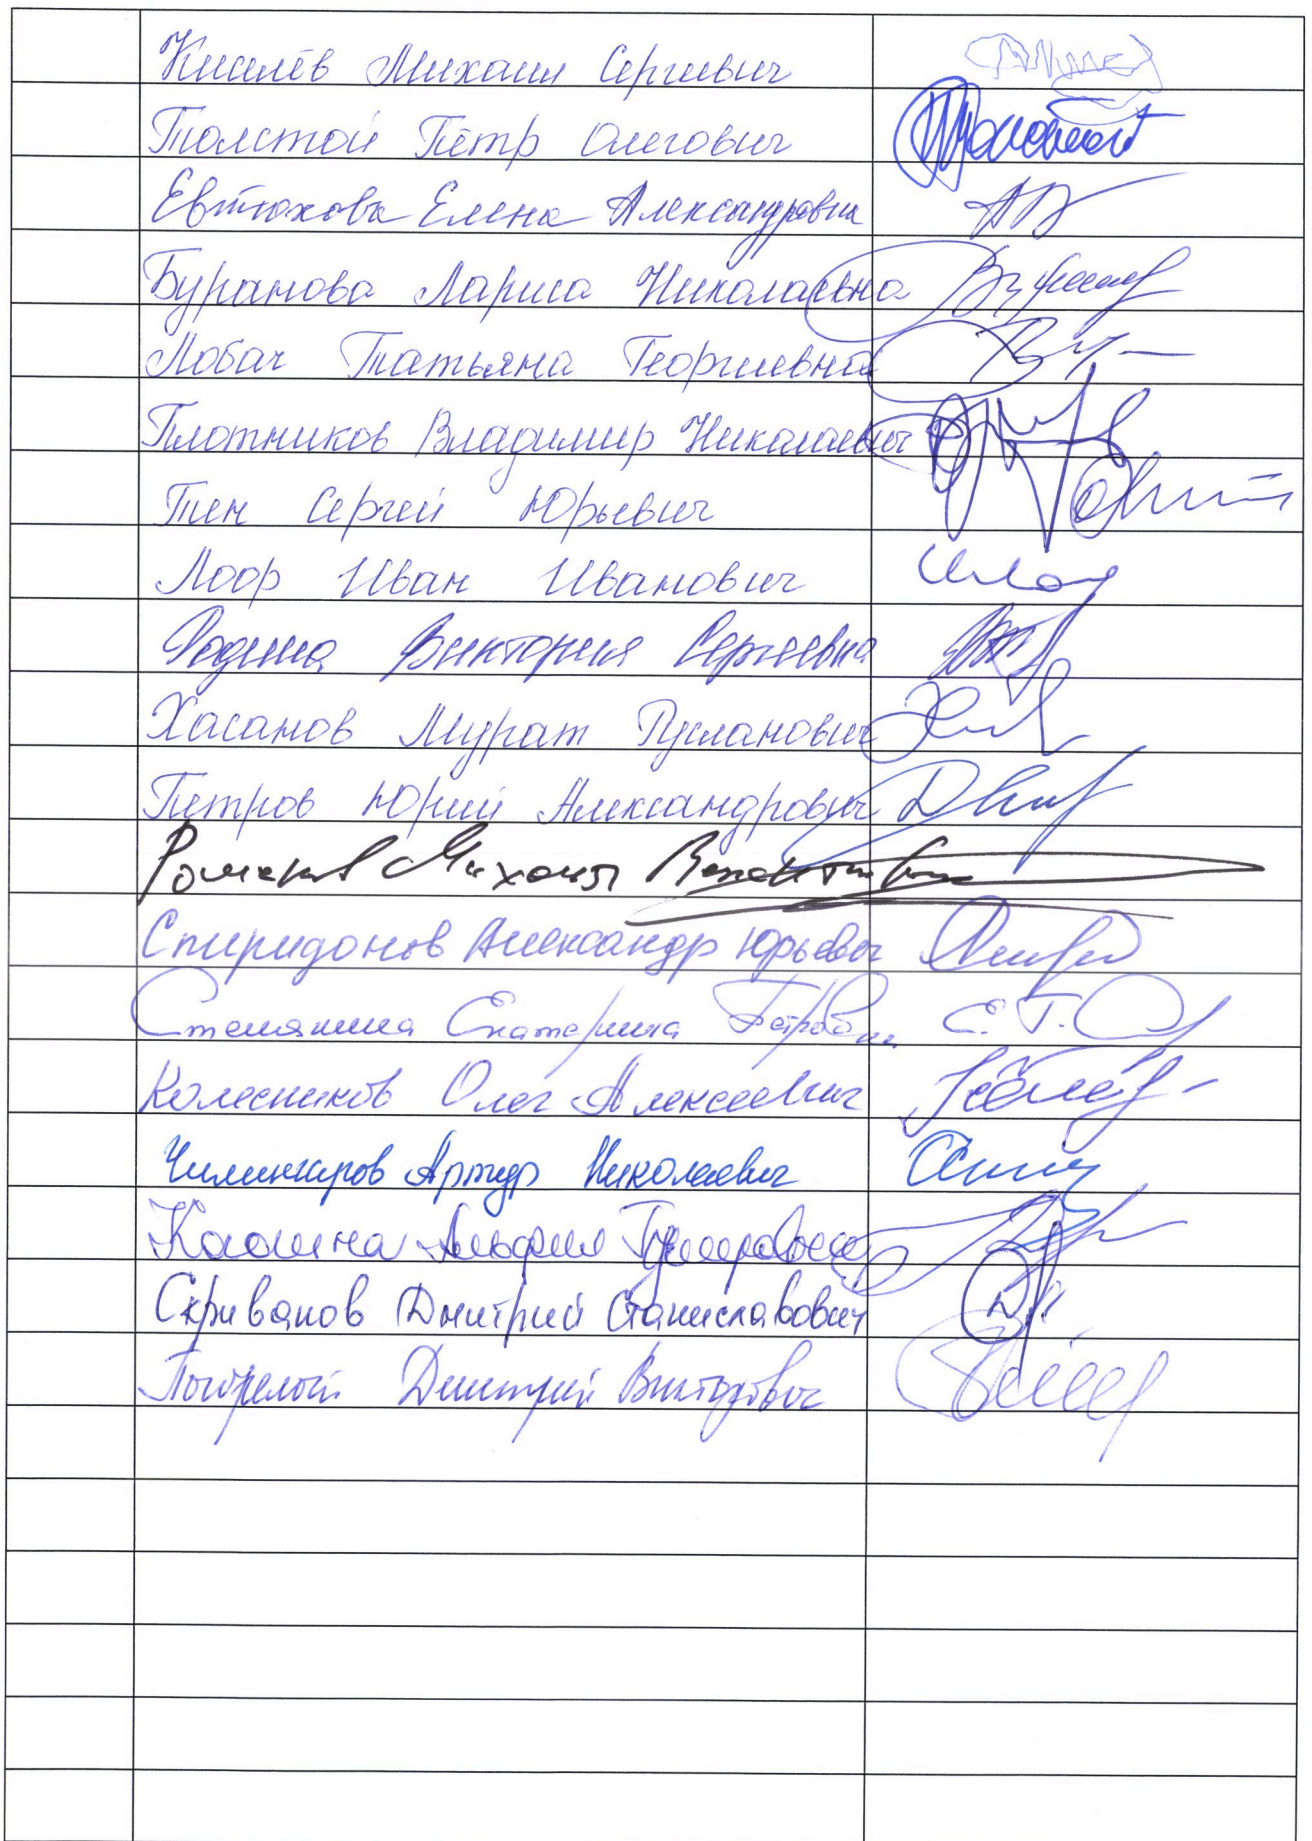 Киселёв Михаил Сергеевич
Толстой Пётр Олегович
Евтюхова Елена Александровна
Буранова Лариса Николаевна
Лобач Татьяна Георгиевна
Плотников Владимир Николаевич
Тен Сергей Юрьевич
Лоор Иван Иванович
Родина Виктория Сергеевна
Хасанов Мурат Русланович
Петров Юрий Александрович
Романов Михаил Валентинович
Спиридонов Александр Юрьевич
Стенякина Екатерина Петровна
Колесников Олег Алексеевич
Чилингаров Артур Николаевич
Когогина Альфия Гумаровна
Скриванов Дмитрий Станиславович
Погорелый Дмитрий Викторович